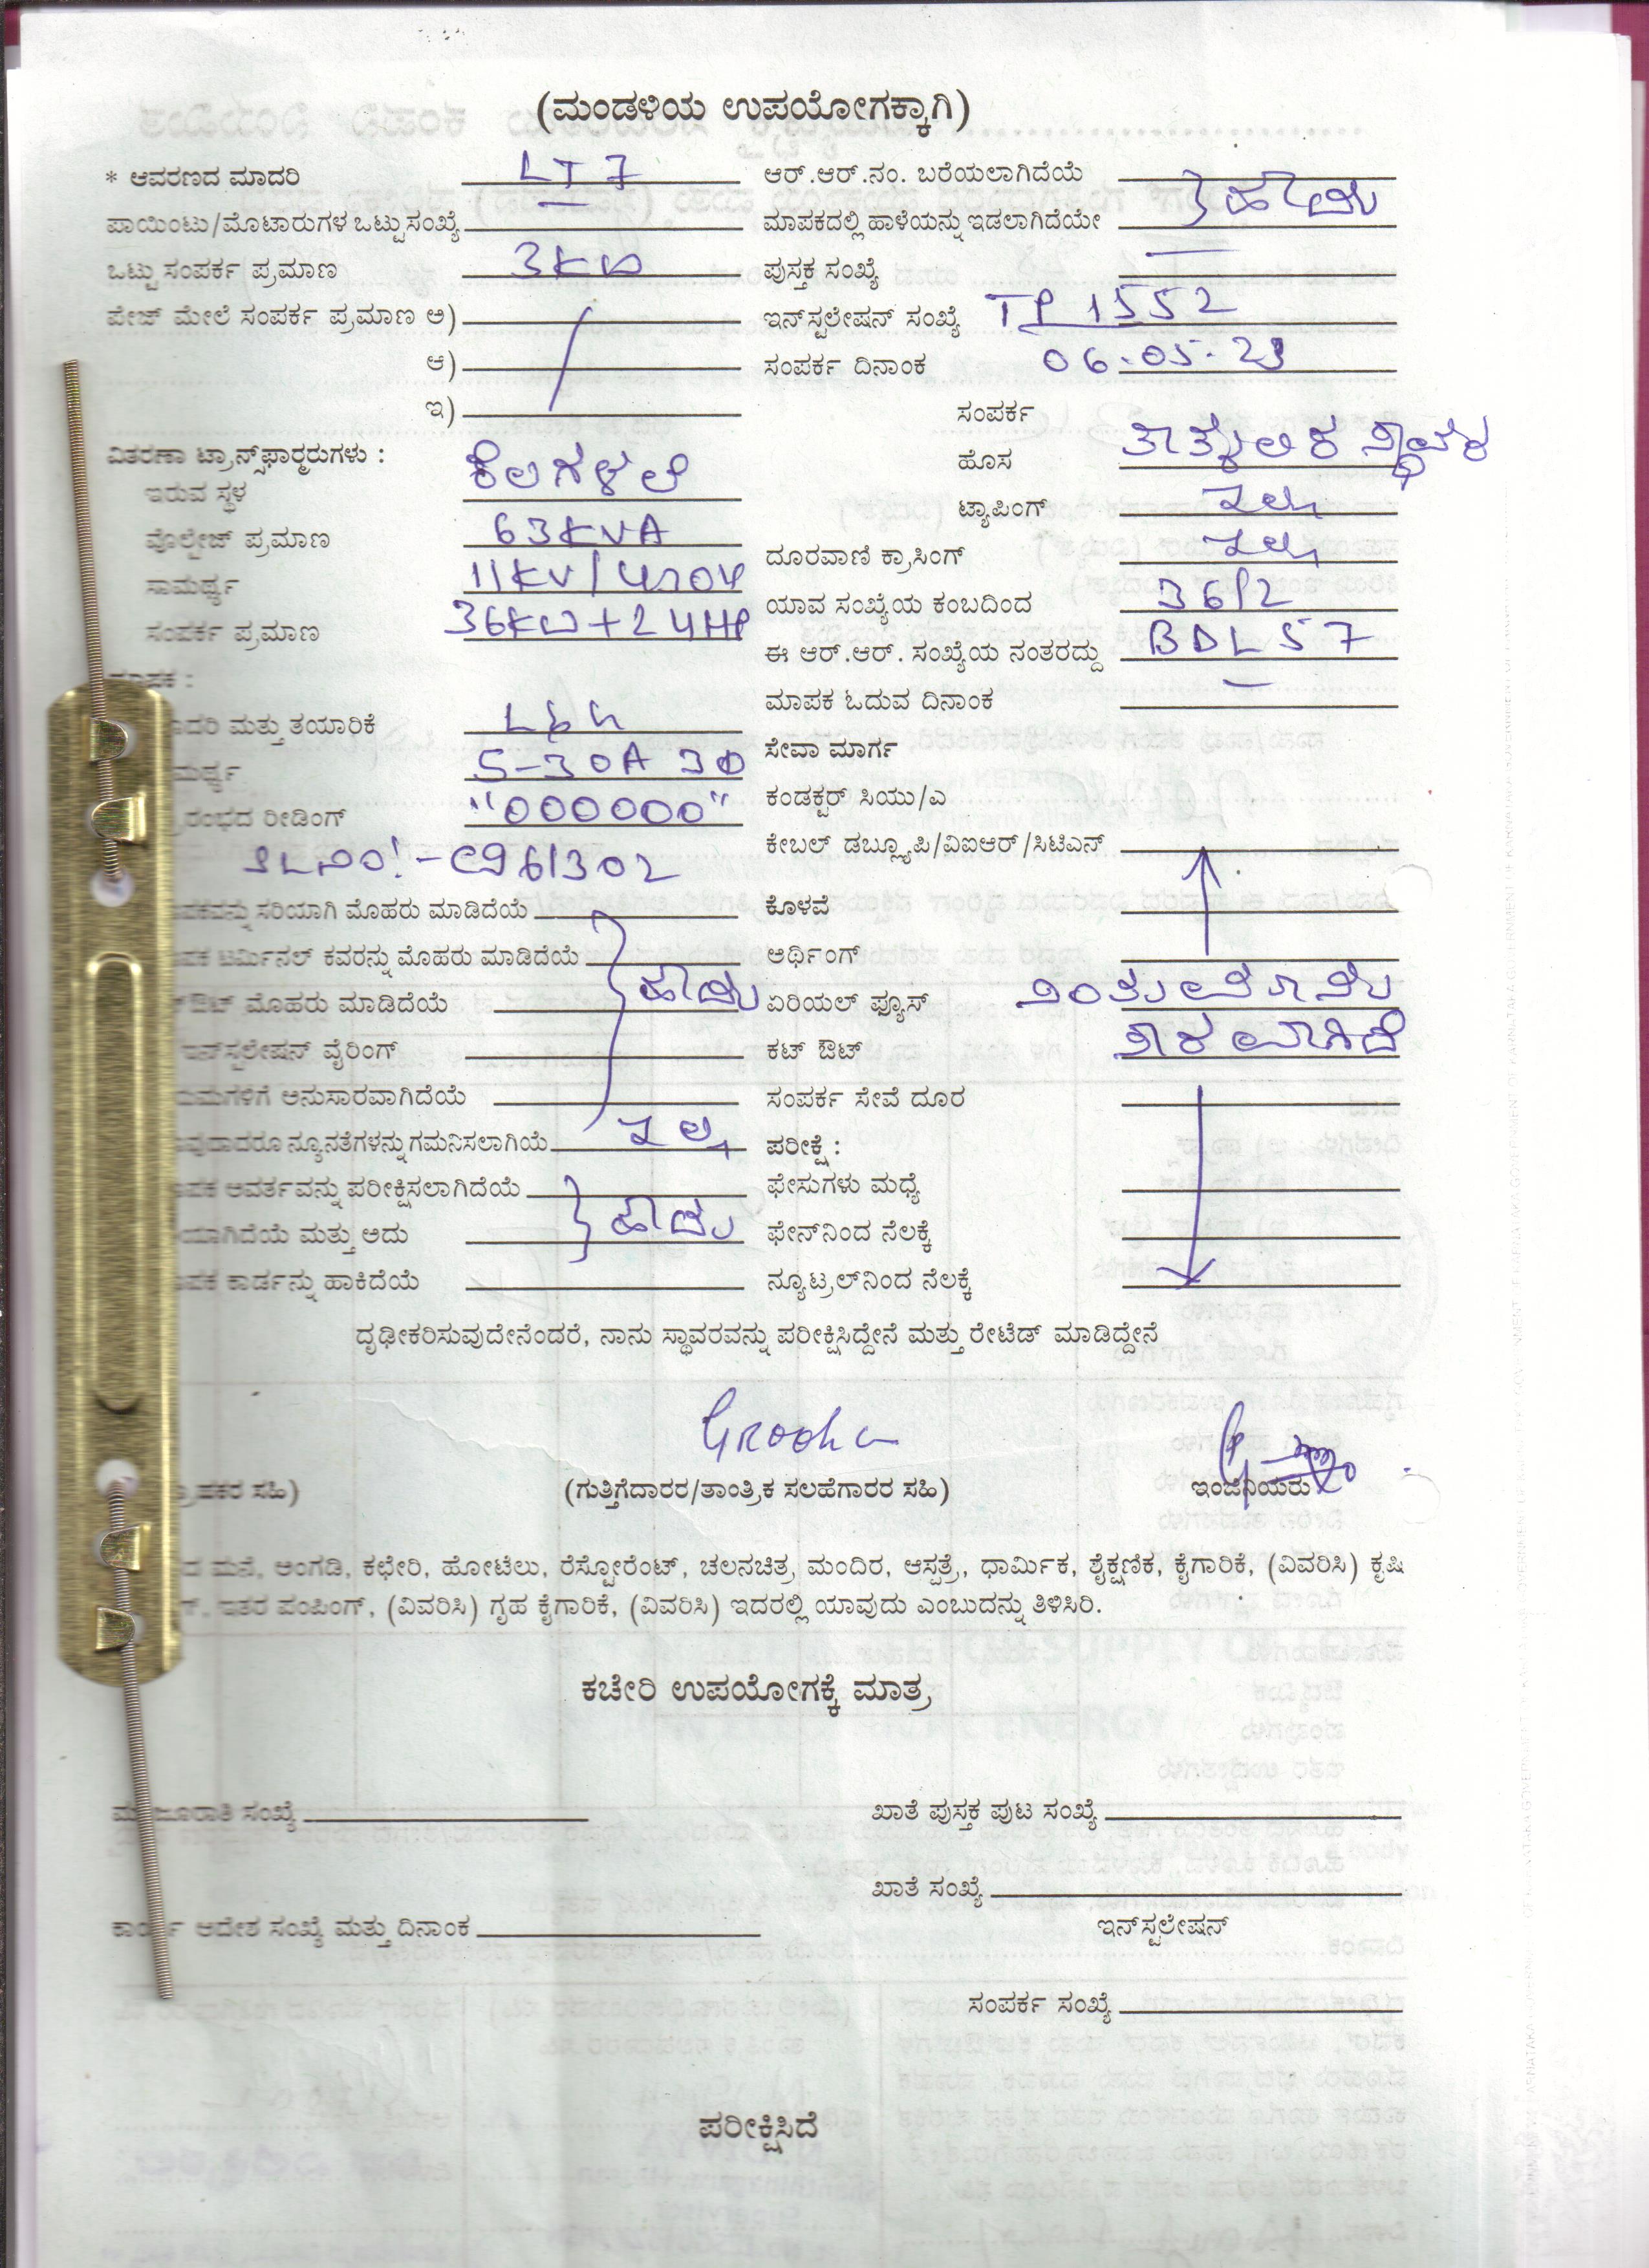 (ಮಂಡಳಿಯ ಉಪಯೋಗಕ್ಕಾಗಿ)
* ಆವರಣದ ಮಾದರಿ LT 7
ಪಾಯಿಂಟು/ಮೊಟಾರುಗಳ ಒಟ್ಟುಸಂಖ್ಯೆ
ಒಟ್ಟು ಸಂಪರ್ಕ ಪ್ರಮಾಣ 3KW
ಪೇಜ್ ಮೇಲೆ ಸಂಪರ್ಕ ಪ್ರಮಾಣ ಅ)
ಆ)
ಇ)
ವಿತರಣಾ ಟ್ರಾನ್ಸ್‌ಫಾರ್‍ಮರುಗಳು :
ಇರುವ ಸ್ಥಳ ಕೆಲಗಳಲೆ
ವೊಲ್ಟೇಜ್ ಪ್ರಮಾಣ 63KVA
ಸಾಮರ್ಥ್ಯ 11KV/
ಸಂಪರ್ಕ ಪ್ರಮಾಣ 36KW+24HP
ಮತ್ತು ತಯಾರಿಕೆ L&G
5-30A 3Φ
ರೀಡಿಂಗ್ "000000"
SLNO:- C961302
ಸರಿಯಾಗಿ ಮೊಹರು ಮಾಡಿದೆಯೆ
ಟರ್ಮಿನಲ್ ಕವರನ್ನು ಮೊಹರು ಮಾಡಿದೆಯೆ ಹೌದು
ಮೊಹರು ಮಾಡಿದೆಯೆ
ಇನ್‌ಸ್ಟಲೇಷನ್ ವೈರಿಂಗ್
ಅನುಸಾರವಾಗಿದೆಯೆ
ನ್ಯೂನತೆಗಳನ್ನು ಗಮನಿಸಲಾಗಿಯೆ ಇಲ್ಲ
ಆವರ್ತವನ್ನು ಪರೀಕ್ಷಿಸಲಾಗಿದೆಯೆ
ಮತ್ತು ಅದು ಹೌದು
ಕಾರ್ಡನ್ನು ಹಾಕಿದೆಯೆ
ಆರ್.ಆರ್.ನಂ. ಬರೆಯಲಾಗಿದೆಯೆ
ಮಾಪಕದಲ್ಲಿ ಹಾಳೆಯನ್ನು ಇಡಲಾಗಿದೆಯೇ ಹೌದು
ಪುಸ್ತಕ ಸಂಖ್ಯೆ —
ಇನ್‌ಸ್ಟಲೇಷನ್ ಸಂಖ್ಯೆ TP 1552
ಸಂಪರ್ಕ ದಿನಾಂಕ 06.05.23
ಸಂಪರ್ಕ
ಹೊಸ ತಾತ್ಕಾಲಿಕ ಸ್ಥಾವರ
ಟ್ಯಾಪಿಂಗ್ ಇಲ್ಲ
ದೂರವಾಣಿ ಕ್ರಾಸಿಂಗ್ ಇಲ್ಲ
ಯಾವ ಸಂಖ್ಯೆಯ ಕಂಬದಿಂದ 36/2
ಈ ಆರ್.ಆರ್. ಸಂಖ್ಯೆಯ ನಂತರದ್ದು BDL57
ಮಾಪಕ ಓದುವ ದಿನಾಂಕ
ಸೇವಾ ಮಾರ್ಗ
ಕಂಡಕ್ಟರ್ ಸಿಯು/ಎ
ಕೇಬಲ್ ಡಬ್ಲ್ಯೂಪಿ/ವಿಐಆರ್/ಸಿಟಿಎಸ್
ಕೊಳವೆ
ಅರ್ಥಿಂಗ್
ಏರಿಯಲ್ ಫ್ಯೂಸ್
ಕಟ್ ಔಟ್
ಸಂಪರ್ಕ ಸೇವೆ ದೂರ
ಪರೀಕ್ಷೆ :
ಫೇಸುಗಳು ಮಧ್ಯೆ
ಫೇಸ್‌ನಿಂದ ನೆಲಕ್ಕೆ
ನ್ಯೂಟ್ರಲ್‌ನಿಂದ ನೆಲಕ್ಕೆ
ದೃಢೀಕರಿಸುವುದೇನೆಂದರೆ, ನಾನು ಸ್ಥಾವರವನ್ನು ಪರೀಕ್ಷಿಸಿದ್ದೇನೆ ಮತ್ತು ರೇಟೆಡ್ ಮಾಡಿದ್ದೇನೆ
ಸಹಿ) (ಗುತ್ತಿಗೆದಾರರ/ತಾಂತ್ರಿಕ ಸಲಹೆಗಾರರ ಸಹಿ) ಇಂಜಿನಿಯರು
ಮನೆ, ಅಂಗಡಿ, ಕಛೇರಿ, ಹೋಟೆಲು, ರೆಸ್ಟೋರೆಂಟ್, ಚಲನಚಿತ್ರ ಮಂದಿರ, ಆಸ್ಪತ್ರೆ, ಧಾರ್ಮಿಕ, ಶೈಕ್ಷಣಿಕ, ಕೈಗಾರಿಕೆ, (ವಿವರಿಸಿ) ಕೃಷಿ
ಇತರ ಪಂಪಿಂಗ್, (ವಿವರಿಸಿ) ಗೃಹ ಕೈಗಾರಿಕೆ, (ವಿವರಿಸಿ) ಇದರಲ್ಲಿ ಯಾವುದು ಎಂಬುದನ್ನು ತಿಳಿಸಿರಿ.
ಕಚೇರಿ ಉಪಯೋಗಕ್ಕೆ ಮಾತ್ರ
ಮಂಜೂರಾತಿ ಸಂಖ್ಯೆ
ಖಾತೆ ಪುಸ್ತಕ ಪುಟ ಸಂಖ್ಯೆ
ಖಾತೆ ಸಂಖ್ಯೆ
ಕಾರ್ಯ ಆದೇಶ ಸಂಖ್ಯೆ ಮತ್ತು ದಿನಾಂಕ
ಇನ್‌ಸ್ಟಲೇಷನ್
ಸಂಪರ್ಕ ಸಂಖ್ಯೆ
ಪರೀಕ್ಷಿಸಿದೆ